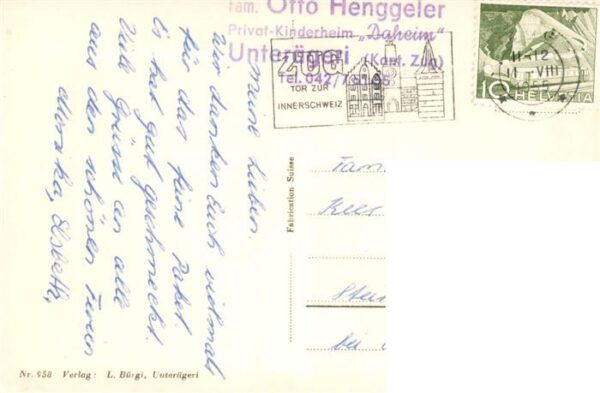 Fam. Otto Henggeler
Privat-Kinderheim „Daheim"
Unterägeri (Kant. Zug)
Tel. 042/7 51 65
ZUG
TOR ZUR
INNERSCHWEIZ
11-12
11.-VIII
10 HELVETIA
Meine Lieben.
Wir danken Euch vielmals
für das feine Paket.
Es hat gut geschmeckt.
Viele Grüsse an alle
aus den schönen Ferien
Elsbeth,
Fabrication Suisse
Fam.
bei
Nr. 958 Verlag: L. Bürgi, Unterägeri